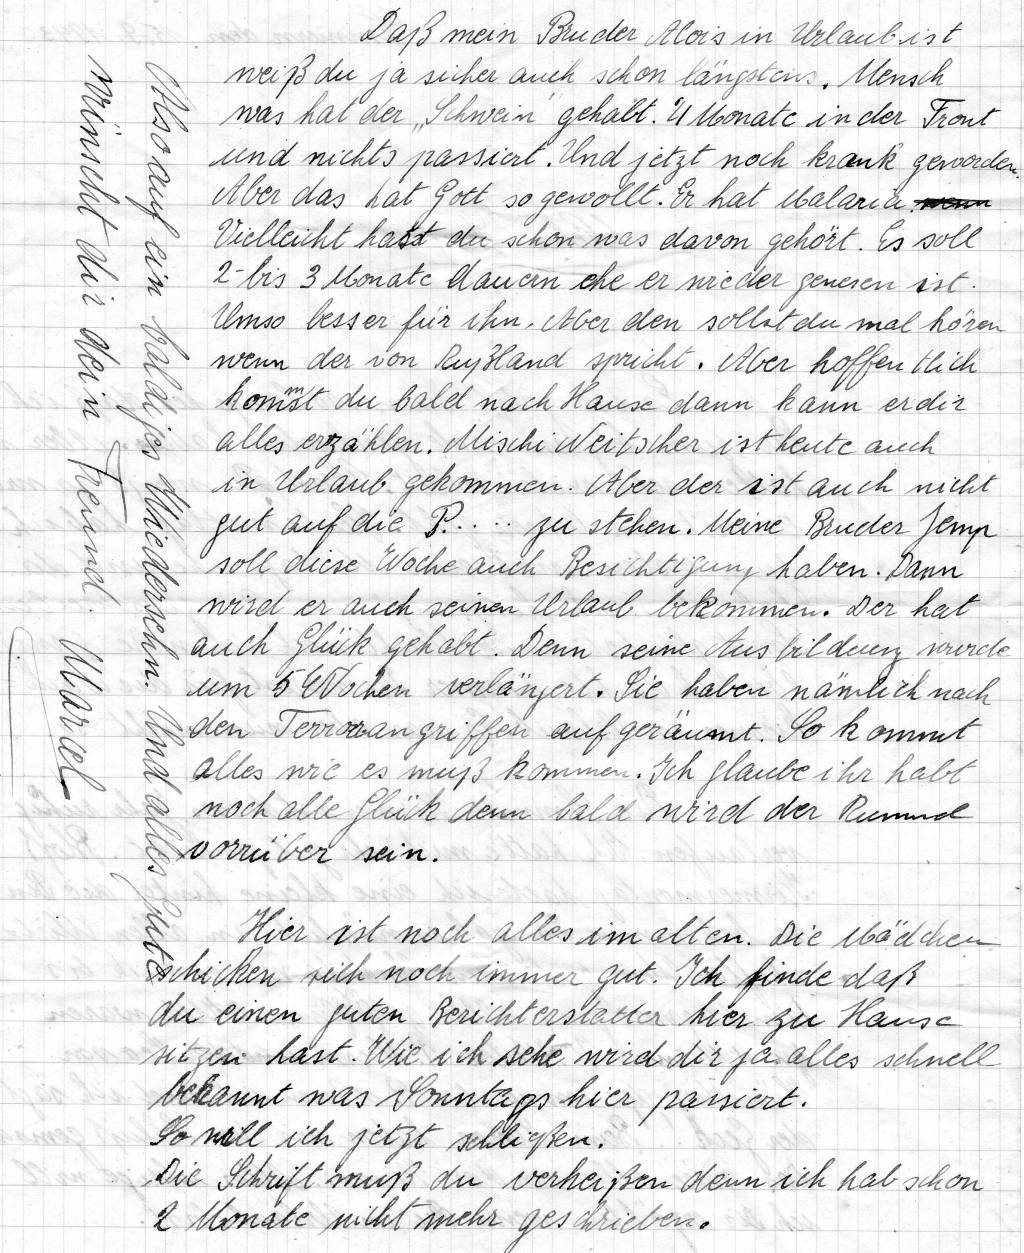 Daß mein Bruder Alois in Urlaub ist
weiß du ja sicher auch schon längstens. Mensch
was hat der „Schwein" gehabt. 4 Monate in der Front
und nichts passiert. Und jetzt noch krank geworden.
Aber das hat Gott so gewollt. Er hat Malaria. wenn
Vielleicht hast du schon was davon gehört. Es soll
2-bis 3 Monate dauern ehe er wieder genesen ist.
Umso besser für ihn. Aber den sollst du mal hören
wenn der von Rußland spricht. Aber hoffentlich
kommst du bald nach Hause dann kann er dir
alles erzählen. Mischi Weitscher ist heute auch
in Urlaub gekommen. Aber der ist auch nicht
gut auf die P..... zu stehen. Meine Bruder Jemp
soll diese Woche auch Besichtigung haben. Dann
wird er auch seinen Urlaub bekommen. Der hat
auch Glück gehabt. Denn seine Ausbildung wurde
um 5 Wochen verlängert. Sie haben nämlich nach
den Terrorangriffen aufgeräumt. So kommt
alles wie es muß kommen. Ich glaube ihr habt
noch alle Glük denn bald wird der Rummel
vorrüber sein.
Hier ist noch alles im alten. Die Mädchen
schicken sich noch immer gut. Ich finde daß
du einen guten Berichterstatter hier zu Hause
sitzen hast. Wie ich sehe wird dir ja alles schnell
bekannt was Sonntags hier passiert.
So will ich jetzt schließen.
Die Schrift muß du verheißen denn ich hab schon
2 Monate nicht mehr geschrieben.
Also auf ein baldiges Wiedersehn. Und alles Gute
winscht dir dein Freund. Marcel